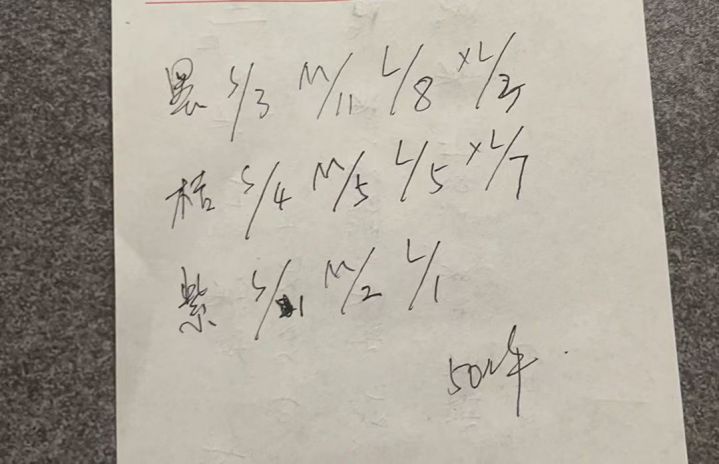 黑 S/3 M/11 L/8 XL/3
桔 S/4 M/5 L/5 XL/7
紫 S/1 M/2 L/1
50件.